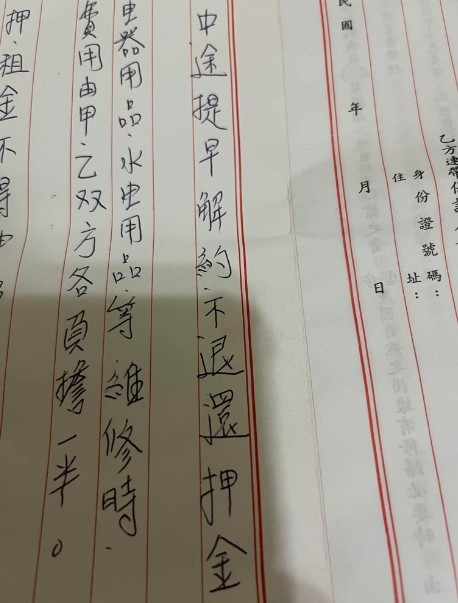 乙方連帶保
身份證號碼：
住址：
民國年月日
中途提早解約.不退還押金
电器用品.水电用品.等維修時.
費用由甲.乙双方各負擔一半。
押.租金不得